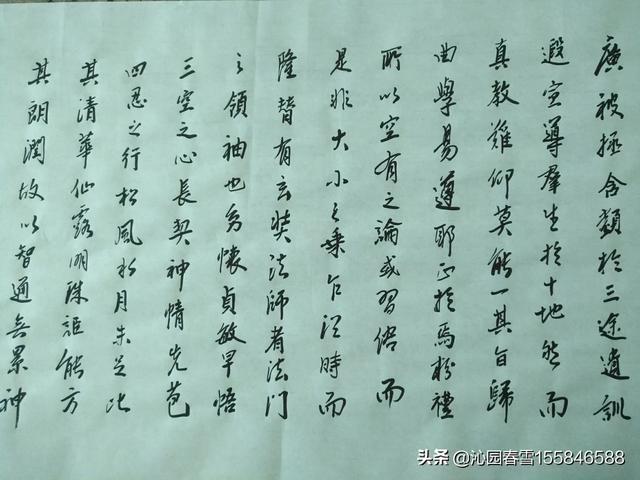 廣被拯含類於三途遺訓
遐宣導羣生於十地然而
真教難仰莫能一其旨歸
曲學易遵耶正於焉紛禮
所以空有之論或習俗而
是非大小之乘乍沿時而
隆替有玄奘法師者法門
之領袖也幼懷貞敏早悟
三空之心長契神情先苞
四忍之行松風水月未足比
其清華仙露明珠詎能方
其朗潤故以智通無累神
头条 @沁园春雪155846588